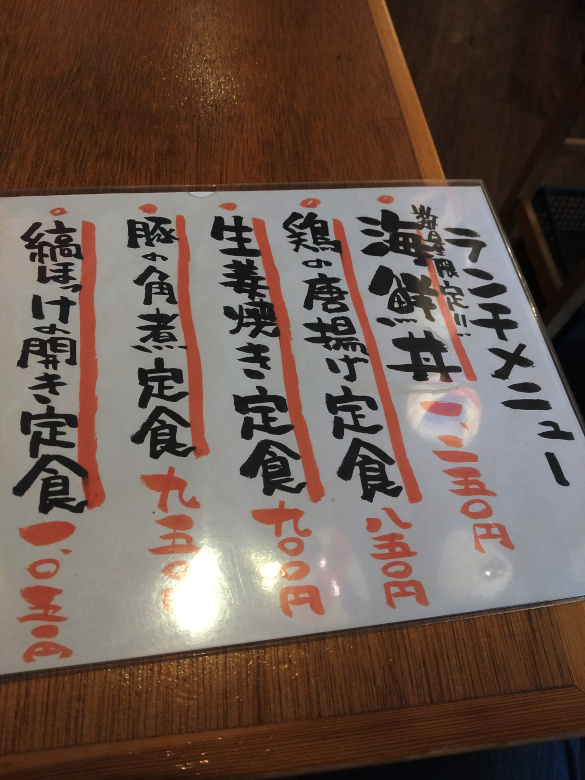 ランチメニュー
数量限定!!
海鮮丼
一、二五〇円
鶏の唐揚げ定食
八五〇円
生姜焼き定食
九〇〇円
豚の角煮定食
九五〇
縞ほっけの開き定食
一、〇五〇円